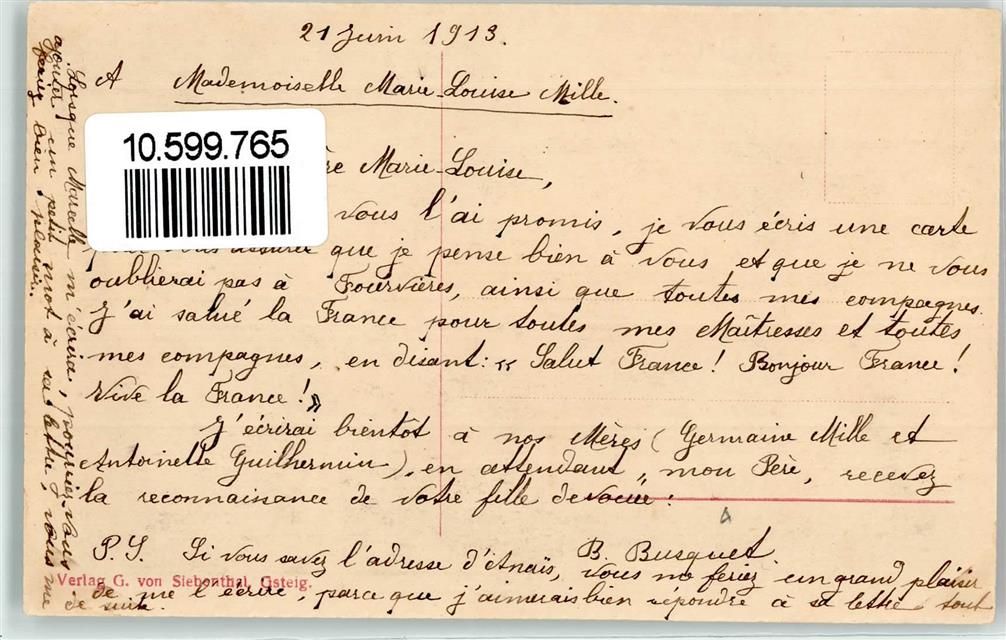 21 Juin 1913.
A Mademoiselle Marie-Louise Mille.
10.599.765
Marie-Louise,
vous l'ai promis, je vous écris une carte
vous assurer que je pense bien à vous et que je ne vous
oublierai pas à Fourvières, ainsi que toutes mes compagnes.
J'ai salué la France pour toutes mes Maîtresses et toutes
mes compagnes, en disant: « Salut France! Bonjour France!
Vive la France! »
J'écrirai bientôt à nos Mères (Germaine Mille et
Antoinette Guilhermin), en attendant, mon Père, recevez
la reconnaissance de votre fille dévouée.
B. Busquet
P.S. Si vous savez l'adresse d'Anaïs, vous me feriez un grand plaisir
de me l'écrire, parce que j'aimerais bien répondre à sa lettre tout
de suite.
Verlag G. von Siebenthal, Gsteig.
Lorsque Marcelle m'écrira, pourriez-vous
ajouter un petit mot à sa lettre, vous me
feriez bien plaisir.